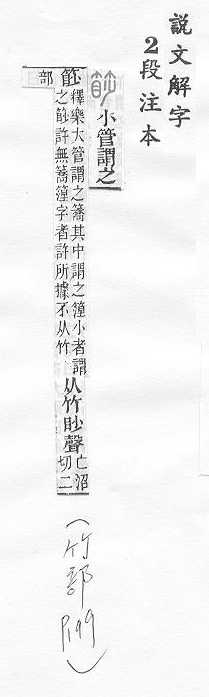 說文解字
2段注本
小管謂之
篎釋樂大管謂之簥其中謂之篞小者謂
之篎許無簥篞字者許所據不从竹
从竹眇聲亡沼
切二
部
(竹部 P.199)